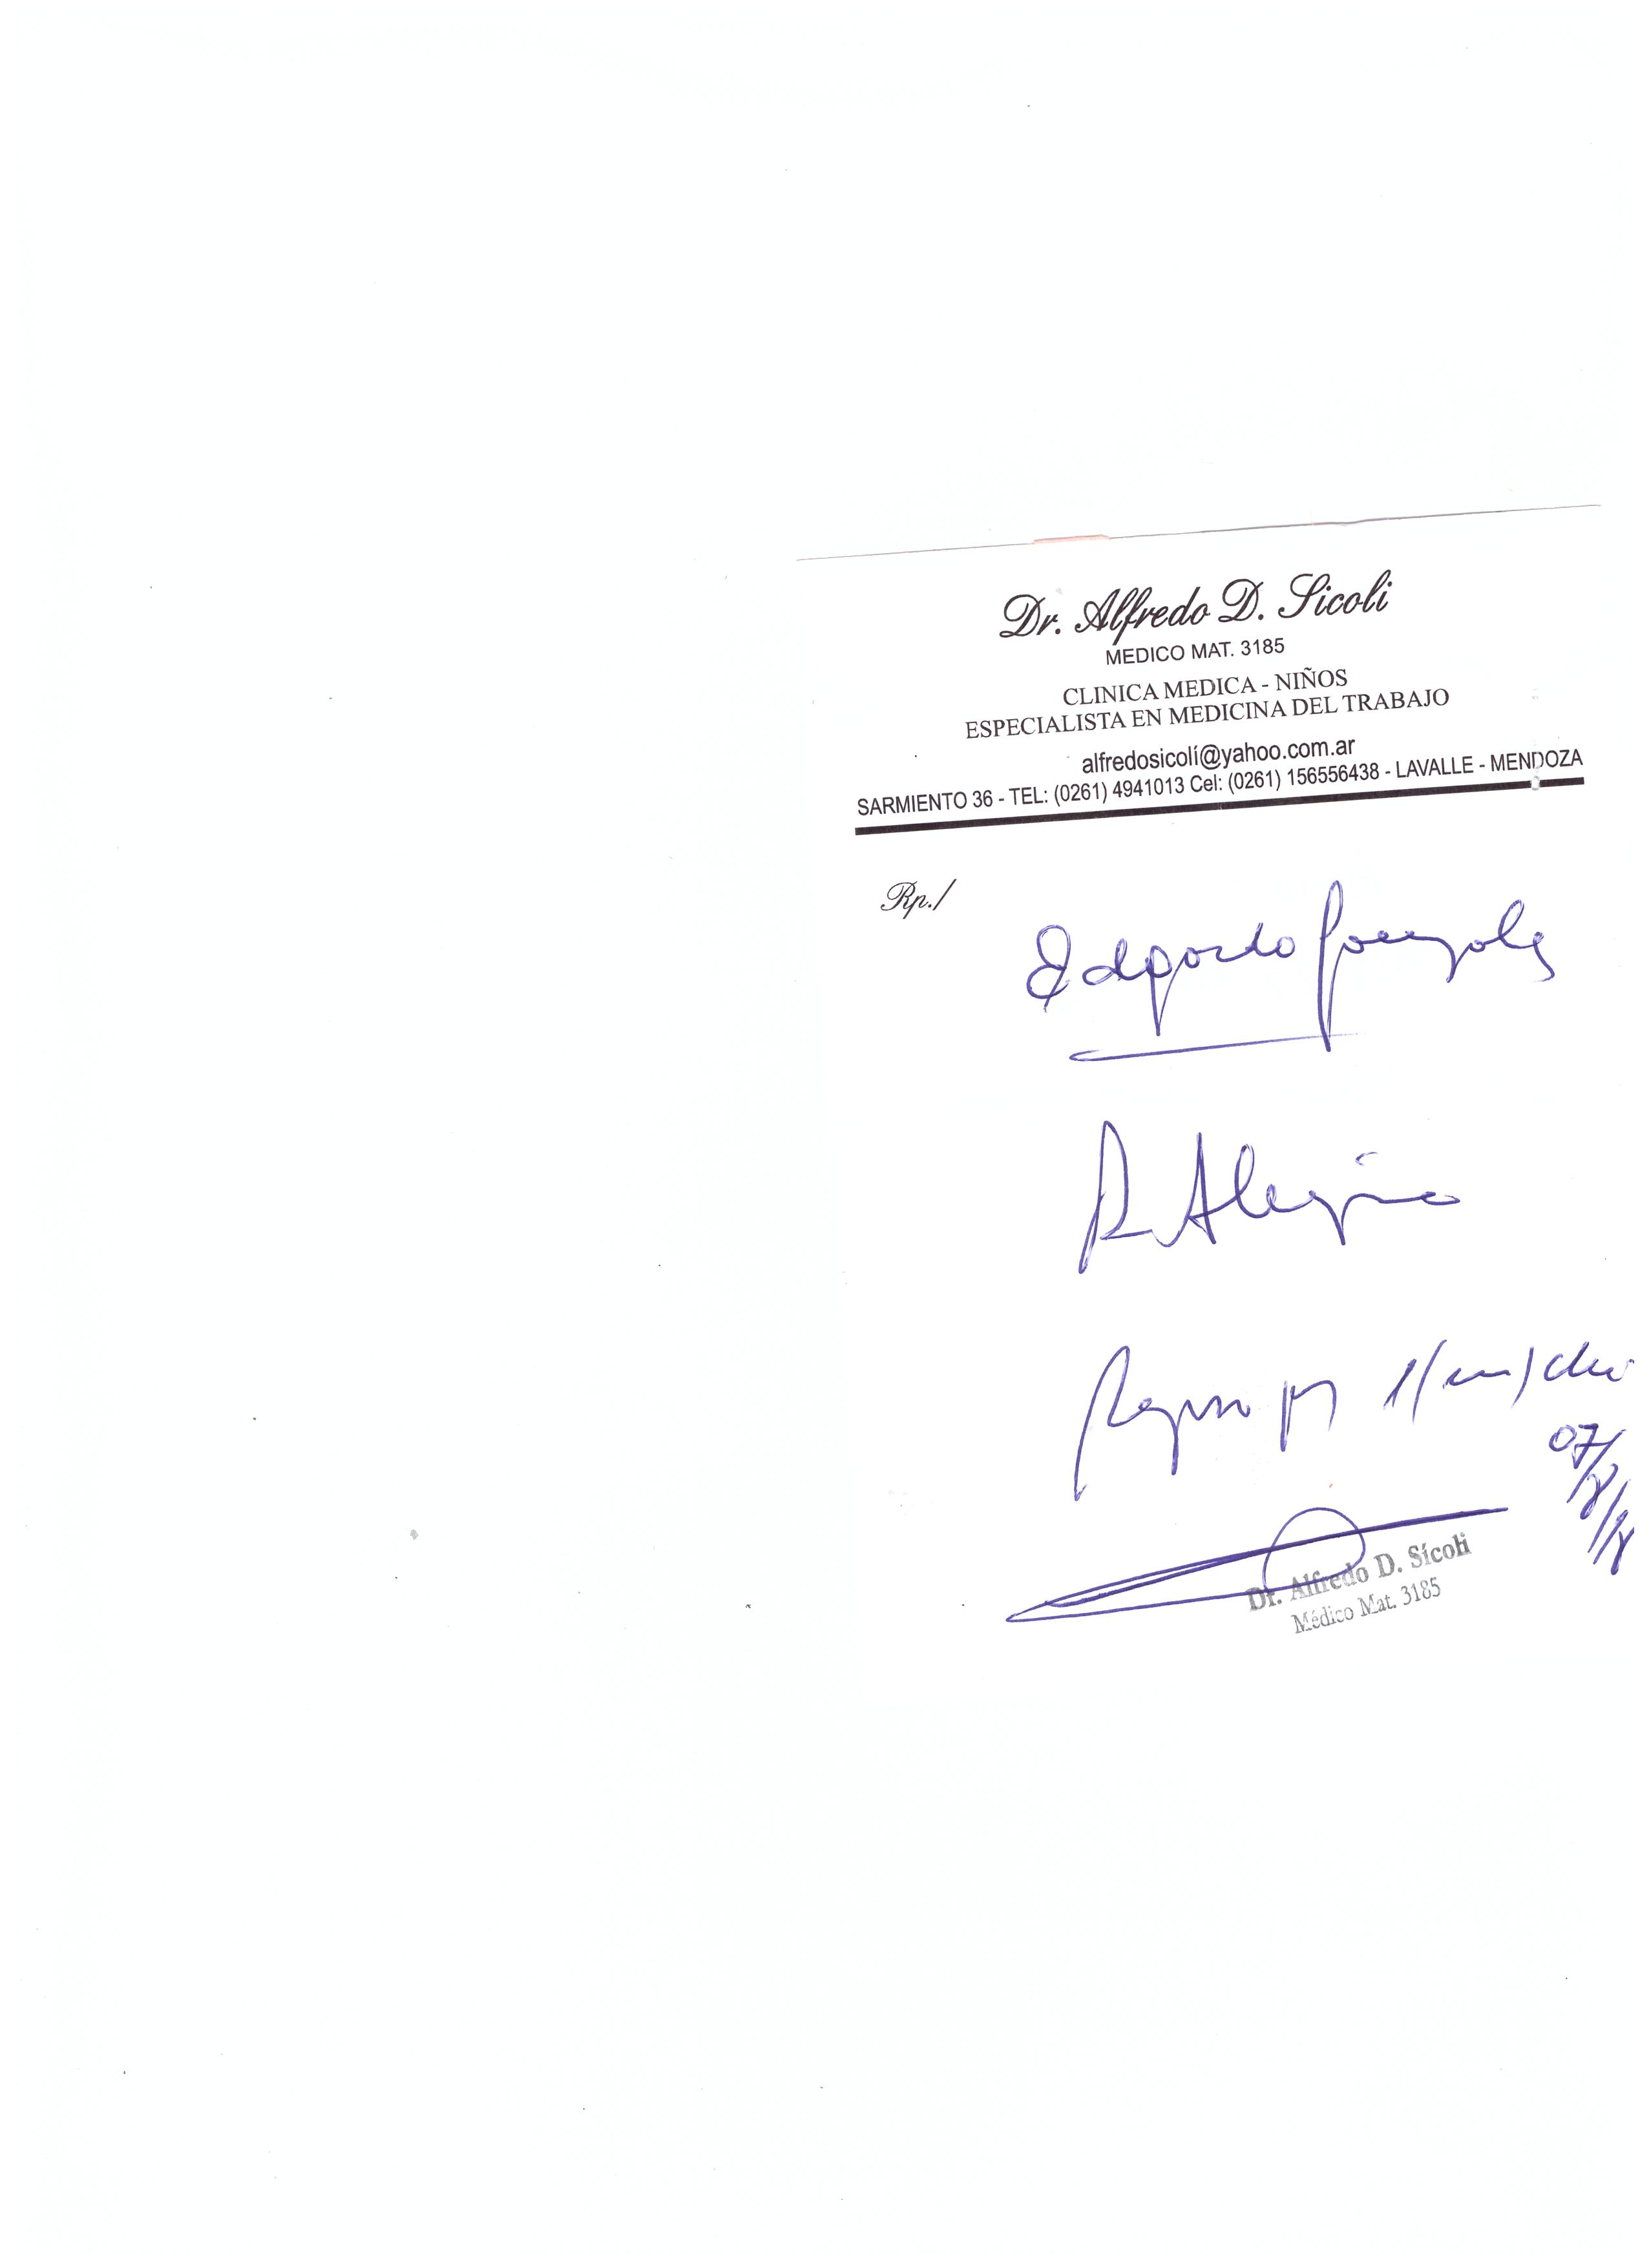 Dr. Alfredo D. Sicoli
MEDICO MAT. 3185
CLINICA MEDICA - NIÑOS
ESPECIALISTA EN MEDICINA DEL TRABAJO
alfredosicolí@yahoo.com.ar
SARMIENTO 36 - TEL: (0261) 4941013 Cel: (0261) 156556438 - LAVALLE - MENDOZA
Rp./
Edgardo Gonzalez
R. Alergia
Reposo 1 (un) dia
07/
Dr. Alfredo D. Sícoli
Médico Mat. 3185